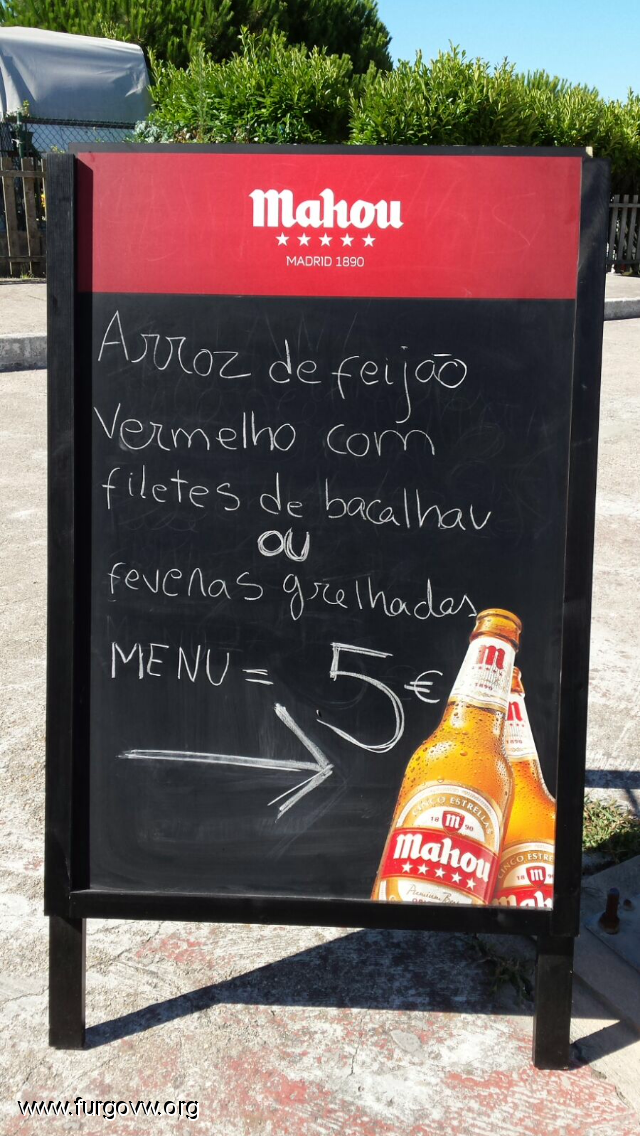 Mahou
MADRID 1890
Arroz de feijão
vermelho com
filetes de bacalhau
ou
feveras grelhadas
MENU = 5€
M
1890
M
CINCO ESTRELLAS
18 M 90
Mahou
CINCO ESTRE
18 M 90
Mah
www.furgovw.org